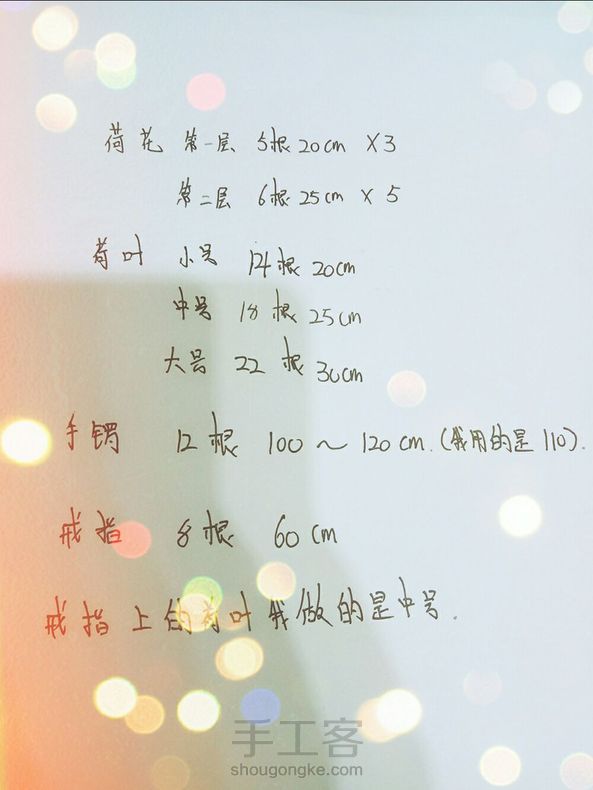 荷花 第一层 5根 20cm X3
第二层 6根 25cm X 5
荷叶 小号 14根 20cm
中号 18根 25cm
大号 22根 30cm
手镯 12根 100~120cm.(我用的是110).
戒指 8根 60cm
戒指上的荷叶我做的是中号.
手工客
shougongke.com